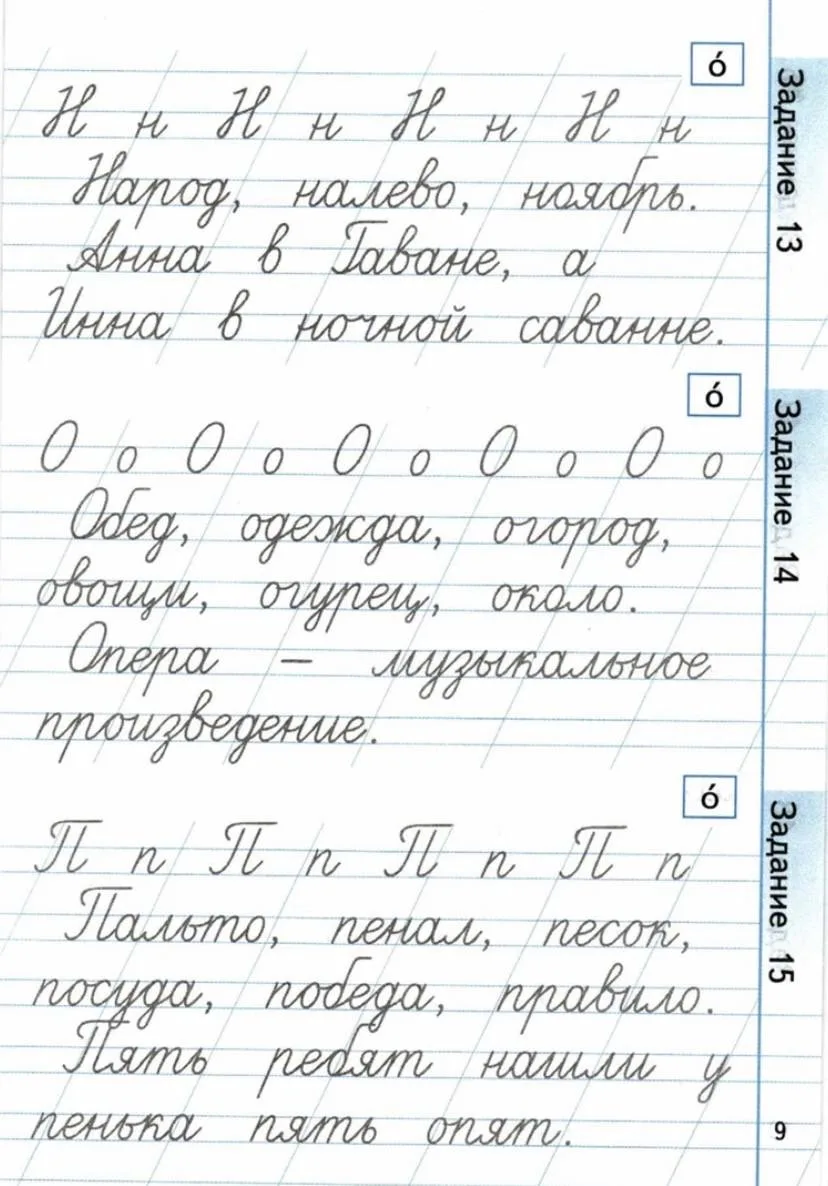 ó
Задание 13
Н н Н н Н н Н н
Народ, налево, ноябрь.
Анна в Гаване, а
Инна в ночной саванне.
ó
Задание 14
О о О о О о О о О о
Обед, одежда, огород,
овощи, огурец, около.
Опера – музыкальное
произведение.
ó
Задание 15
П п П п П п П п
Пальто, пенал, песок,
посуда, победа, правило.
Пять ребят нашли у
пенька пять опят.
9